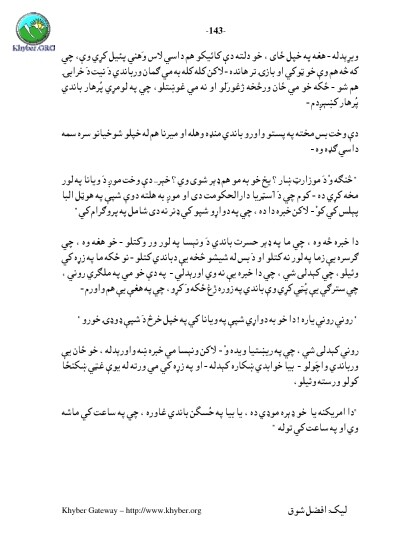 -143-
Khyber.ORG
ويرېدله - هغه په خپل ځای ، خو دلته دې کائيکو هم داسې لاس وهنې پيئيل کړې وې، چې
که څه هم وې خو ټوکې او بازۍ تر هانده - لاکن کله کله به مې ګمان ورباندې دَ نيت دَ خرابۍ
هم شو - ځکه خو مې ځان ورڅخه ژغورلو او نه مې غوښتلو، چې په لومړي پُرهار باندې
پُرهار کښېږدم -
دې وخت بس مخته په پستو واورو باندې منډه وهله او ميرنا هم له خپلو شوخيانو سره سمه
داسې ګډه وه -
"څنګه وُ دَ موزارټ ښار ؟ يخ خو به مو هم ډېر شوی وي ؟ خېر.. دې وخت موږ دَ ويانا په لور
مخه کړې ده - کوم چې دَ آسټريا دارالحکومت دی او موږ به هلته دوې شپې په هوټل البا
پېلس کې کوُ - لاکن خبره دا ده ، چې په دواړو شپو کې ډنر نه دی شامل په پروګرام کې"
دا خبره څه وه ، چې ما په ډېر حسرت باندې دَ ونېسا په لور ور وکتلو - خو هغه وه ، چې
ګرسره يې زما په لور نه کتلو او دَ بس له شيشو څخه يې دباندې کتلو - نو ځکه ما په زړه کې
وئيلو ، چې کېدلی شي ، چې دا خبره يې نه وي اورېدلې - په دې خو مې په ملګري رونې ،
چې سترګې يې پُټې کړې وې باندې په زوره ژغ ځکه وَکړو، چې په هغې يې هم واورم -
"رونې رونې ياره ! دا خو به دواړې شپې په ويانا کې په خپل خرڅ دَ شپې ډوډۍ خورو "
رونې کېدلی شي ، چې په رېښتيا ويده وُ - لاکن ونېسا مې خبره ښه واورېدله ، خو ځان يې
ورباندې واچولو - بيا خوابدې ښکاره کېدله - او په زړه کې مې ورته له يوې غټې ښکنځا
کولو ورسته وئيلو .
"دا امريکنه يا خو ډېره موډي ده ، يا بيا په حُسګن باندې غاوره ، چې په ساعت کې ماشه
وي او په ساعت کې توله "
Khyber Gateway – http://www.khyber.org
ليک: افضل شوق